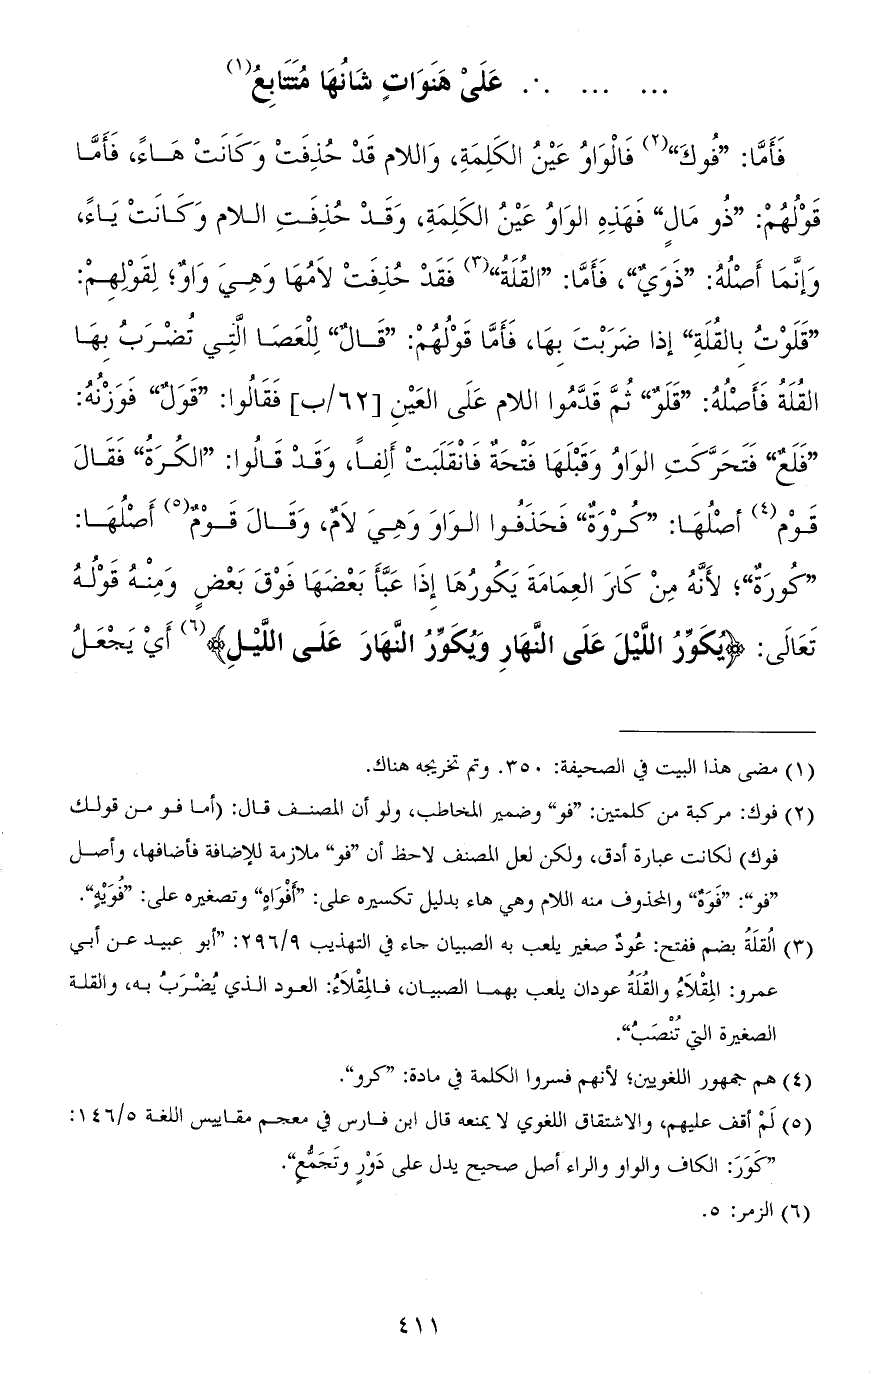 ... ... ... عَلَىْ هَنَوَاتٍ شَانُهَا مُتَتَابِعُ(١)
فَأَمَّا: "فُوكَ"(٢) فَالْوَاوُ عَيْنُ الكَلِمَةِ، وَاللام قَدْ حُذِفَتْ وَكَانَتْ هَـاءً، فَأَمَّـا
قَوْلُهُمْ: "ذُو مَالٍ" فَهَذِهِ الوَاوُ عَيْنُ الكَلِمَةِ، وَقَـدْ حُذِفَـتِ الـلام وَكَـانَتْ يَـاءً،
وَإِنَّمَا أَصْلُهُ: "ذَوَيٌ"، فَأَمَّا: "القُلَةُ"(٣) فَقَدْ حُذِفَتْ لاَمُهَا وَهِـيَ وَاوٌ؛ لِقَوْلِهِـمْ:
"قَلَوْتُ بِالقُلَةِ" إذا ضَرَبْتَ بِهَا، فَأَمَّا قَوْلُهُمْ: "قَـالٌ" لِلْعَصَـا الَّتِـي تُضْـرَبُ بِهَـا
القُلَةُ فَأَصْلُهُ: "قَلَوٌ" ثُمَّ قَدَّمُوا اللام عَلَى العَيْنِ [٦٢/ب] فَقَالُوا: "قَوَلٌ" فَوَزْنُهُ:
"فَلَعٌ" فَتَحَرَّكَتِ الوَاوُ وَقَبْلَهَا فَتْحَةٌ فَانْقَلَبَتْ أَلِفـاً، وَقَـدْ قَـالُوا: "الكُـرَةُ" فَقَـالَ
قَوْم(٤) أَصْلُهَـا: "كُـرْوَةٌ" فَحَذَفُـوا الـوَاوَ وَهِـيَ لاَمٌ، وَقَـالَ قَـوْمٌ(٥) أَصْلُهَـا:
"كُورَةٌ"؛ لأَنَّهُ مِنْ كَارَ العِمَامَةَ يَكُورُهَا إِذَا عَبَّأَ بَعْضَهَا فَوْقَ بَعْضٍ وَمِنْهُ قَوْلُـهُ
تَعَالَى: ﴿يُكَوِّرُ اللَّيْلَ عَلَى النَّهَارِ وَيُكَوِّرُ النَّهَارَ عَلَـى اللَّيْـلِ﴾(٦) أَيْ يَجْعَـلُ
(١) مضى هذا البيت في الصحيفة: ٣٥٠. وتم تخريجه هناك.
(٢) فوك: مركبة من كلمتين: "فو" وضمير المخاطب، ولو أن المصنـف قـال: (أمـا فـو مـن قولـك
فوك) لكانت عبارة أدق، ولكن لعل المصنف لاحظ أن "فو" ملازمة للإضافة فأضافها، وأصـل
"فو": "فَوَهٌ" والمحذوف منه اللام وهي هاء بدليل تكسيره على: "أَفْوَاهٍ" وتصغيره على: "فُوَيْهٍ".
(٣) القُلَةُ بضم ففتح: عُودٌ صغير يلعب به الصبيان جاء في التهذيب ٢٩٦/٩: "أبو عبيـد عـن أبـي
عمرو: المِقْلاَءُ والقُلَةُ عودان يلعب بهمـا الصبيـان، فـالمِقْلاَءُ: العـود الـذي يُضْـرَبُ بـه، والقلـة
الصغيرة التي تُنْصَبُ".
(٤) هم جمهور اللغويين؛ لأنهم فسروا الكلمة في مادة: "كرو".
(٥) لَمْ أقف عليهم، والاشتقاق اللغوي لا يمنعه قال ابن فـارس في معجـم مقـاييس اللغـة ١٤٦/٥:
"كَوَرَ: الكاف والواو والراء أصل صحيح يدل على دَوْرٍ وتَجَمُّعٍ".
(٦) الزمر: ٥.
٤١١